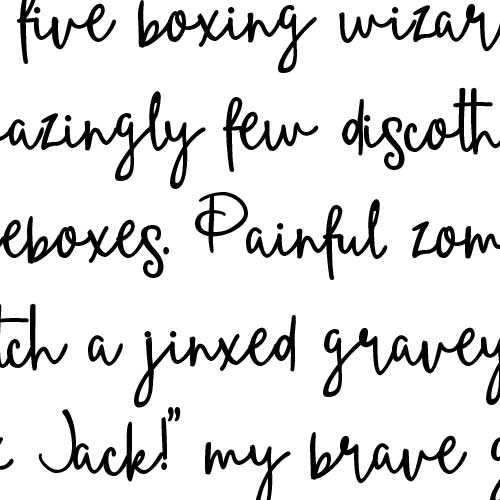 five boxing wizar
azingly few discoth
eboxes. Painful zom
tch a jinxed gravey
Jack!" my brave